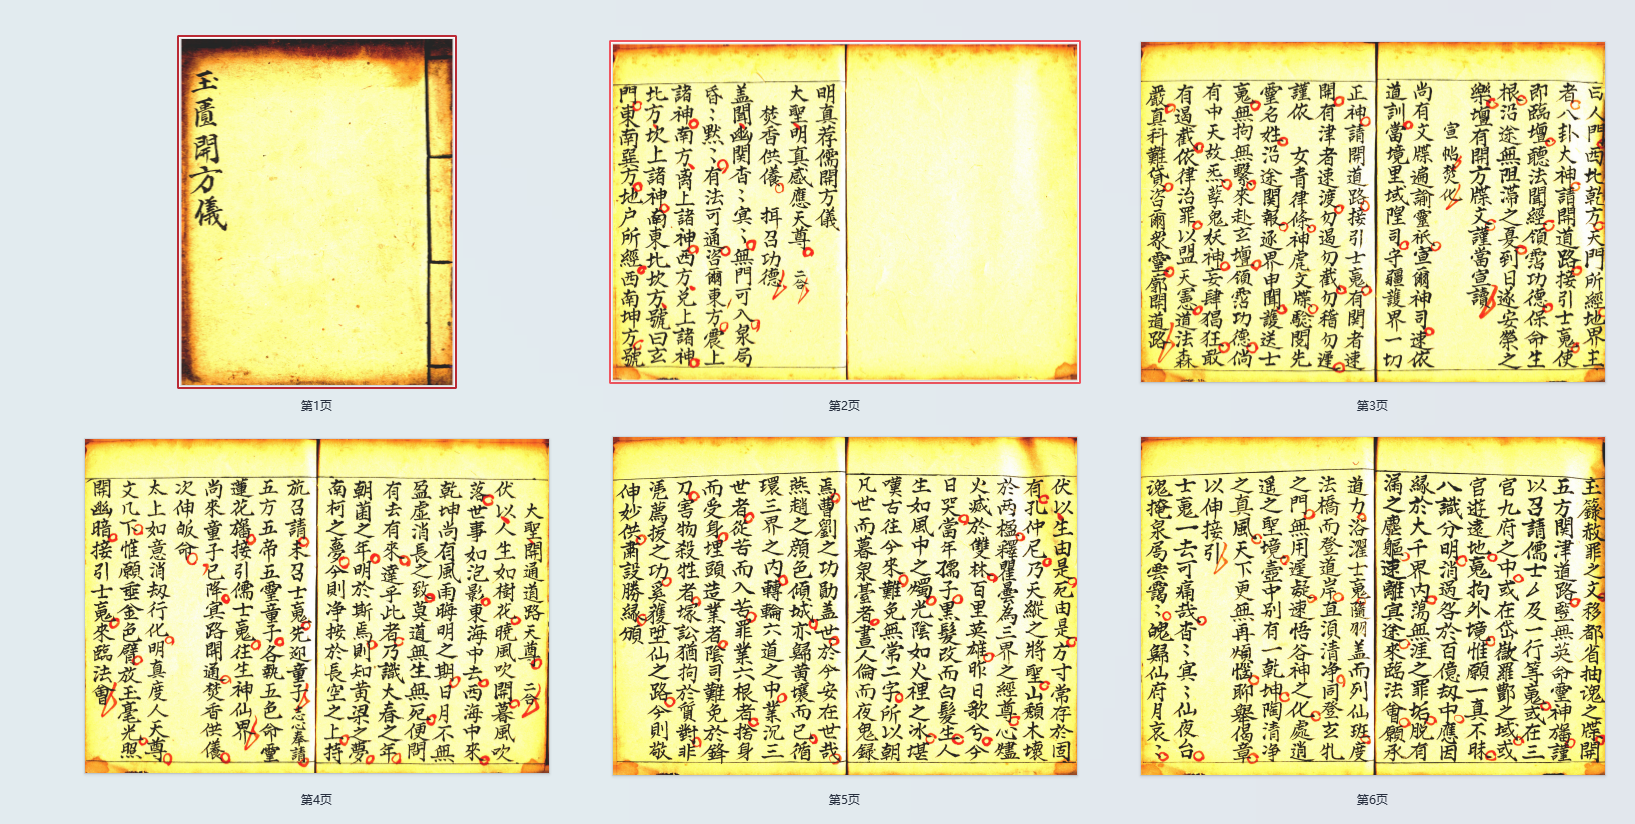 玉匱開方儀
第1页
明真荐儒開方儀
大聖明真感應天尊 二合
焚香供儀 揖召功德
盖聞幽関杳〻冥〻無門可入泉局
昏〻黙〻有法可通咨爾東方震上
諸神南方离上諸神西方兑上諸神
北方坎上諸神東北坎方號曰玄
門東南巽方地户所經西南坤方號
第2页
曰人門西北乾方天門所經地界主
者八卦大神請開道路接引士䰟使
即臨壇聽法聞經領霑功德保命生
根沿途無阻滞之憂到日遂安榮之
樂壇有開方牒文謹當宣讀
宣帖焚化
尚有文牒遍諭靈祇宣爾神司速依
道訓當境里域隍司守疆護界一切
正神請開道路接引士䰟有関者速
開有津者速渡勿遏勿截勿稽勿遲
謹依 女青律條神虎文牒騐関先
靈名姓沿途関報逐界申聞護送士
䰟無拘無繫來赴玄壇領霑功德倘
有中天故炁孽鬼妖神妄肆猖狂敢
有遏截依律治罪以盟天憲道法森
嚴真科難貸咨爾衆靈廓開道路
第3页
大聖開通道路天尊 二合
伏以人生如樹花曉風吹開暮風吹
落世事如泡影東海中去西海中來
乾坤尚有風雨晦明之期日月不無
盈虛消長之致莫道無生無死便問
有去有來達乎此者乃識大春之年
朝菌之年明於斯焉則知黄梁之夢
南柯之夢今則净按於長空之上持
旒召請未召士䰟先迎童子 志志奉請
五方五帝五靈童子各執五色命靈
蓮花旛接引儒士䰟往生神仙界
尚來童子已降冥路開通焚香供儀
次伸皈命
太上如意消刼行化明真度人天尊
文几下惟願垂金色臂放玉毫光照
開幽暗接引士䰟來臨法會
第4页
伏以生由是死由是方寸常存於固
有孔仲尼乃天縱之將聖山頹木壞
於两楹釋瞿曇為三界之經尊心燼
火滅於雙林百里英雄昨日歌兮今
日哭當年孺子黒髮改而白髮生人
生如風中之燭光陰如火裡之冰堪
嘆古往今來難免無常二字所以朝
凡世而暮泉臺者晝人倫而夜鬼録
焉曹劉之功勛蓋世於今安在世哉
燕趙之顔色傾城亦歸黄壤而已循
環三界之内轉輪六道之中業沉三
世者從苦而入苦罪業六根者捨身
而受身埋頭造業者陰司難免於鋒
刀害物殺牲者塚訟猶拘於質對非
憑薦拔之功奚獲堕仙之路今則敬
伸妙供肅設勝縁頒
第5页
玉籙赦罪之文移都省抽魂之牒開
五方関津道路竪無英命靈神旛謹
以召請儒士厶及一行等䰟或在三
宮九府之中或在岱嶽羅酆之域或
宮遊遠地䰟拘外境惟願一真不昧
八識分明消過咎於百億刼中應因
縁於大千界内蕩無涯之罪垢脱有
漏之虛軀速離冥途來臨法會願承
道力沿濯士䰟隨羽盖而列仙班度
法橋而登道岸直湏清净同登玄牝
之門無用遲疑速悟谷神之化處逍
遥之聖境壺中别有一乾坤陶清净
之真風天下更無再煩惱聊舉偈章
以伸接引
士䰟一去可痛哉杳〻冥〻仙夜台
魂掩泉局雲靄〻魄歸仙府月哀〻
第6页